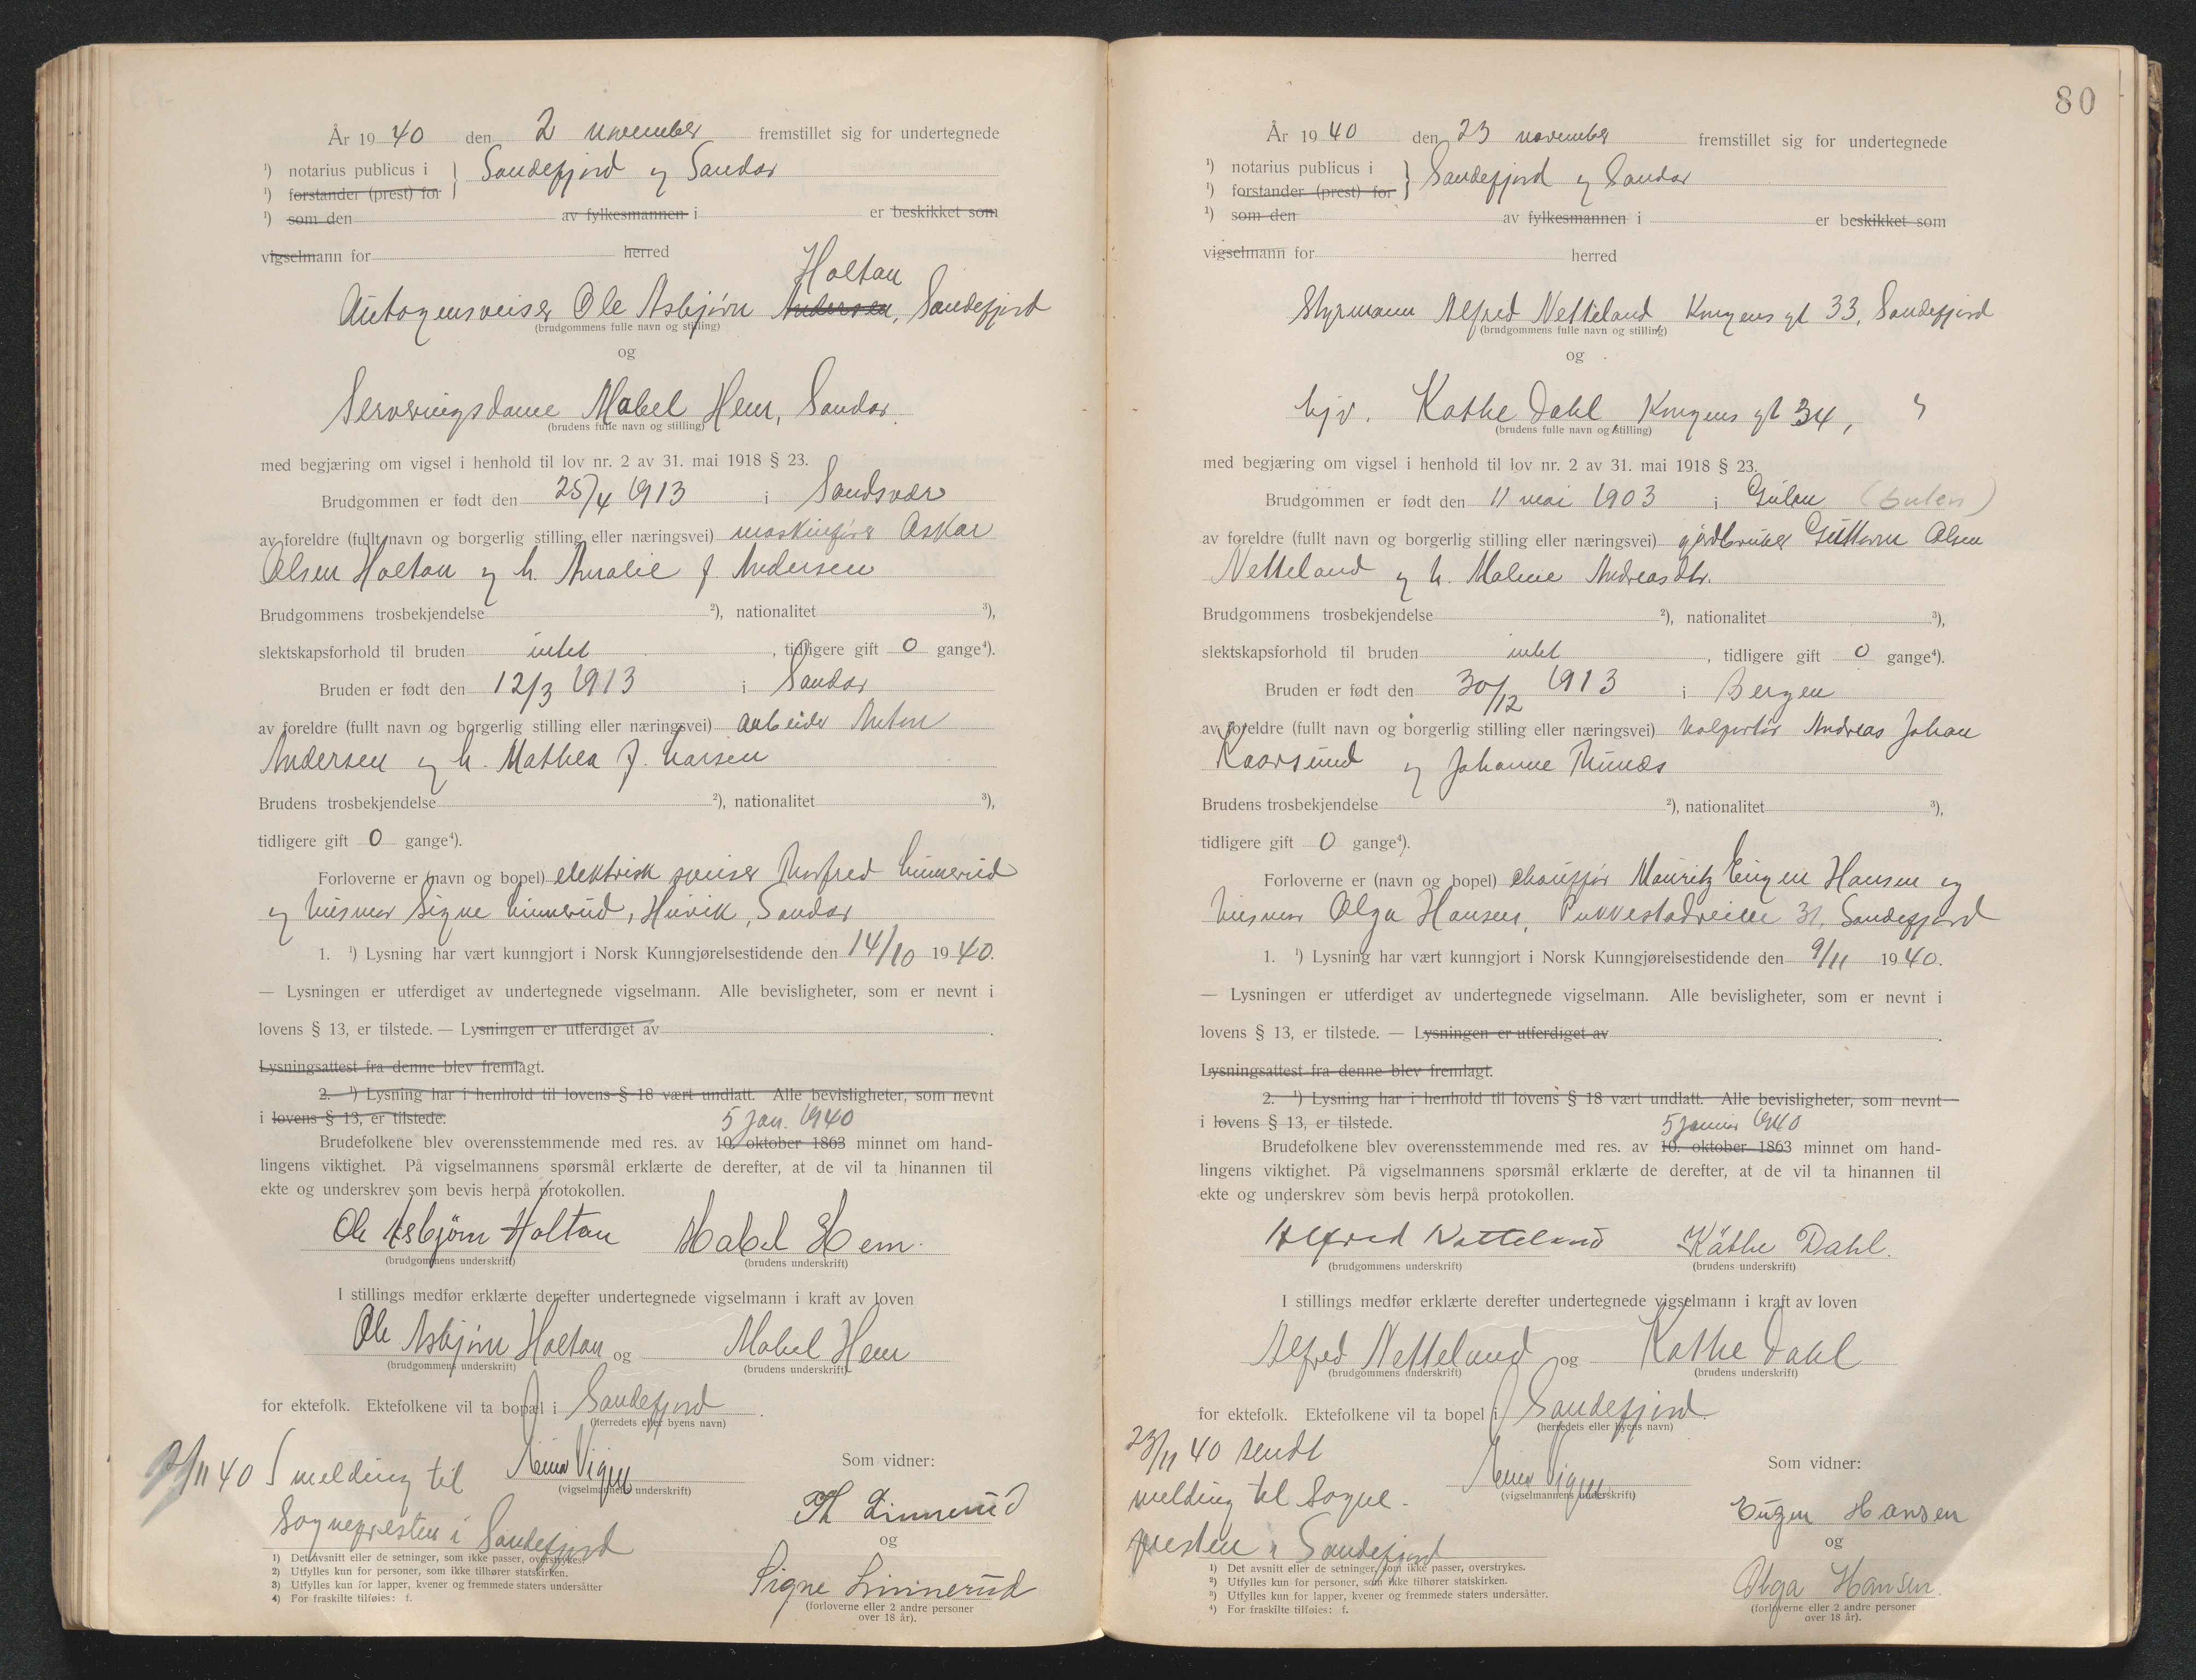 År 19 40 den 2 november fremstillet sig for undertegnede
¹) notarius publicus i } Sandefjord og Sandar
¹) forstander (prest) for
¹) som den av fylkesmannen i er beskikket som
vigselmann for herred
Holtan
Autogensveiser Ole Asbjørn Andersen, Sandefjord
(brudgommens fulle navn og stilling)
og
Serveringsdame Mabel Hem, Sandar.
(brudens fulle navn og stilling)
med begjæring om vigsel i henhold til lov nr. 2 av 31. mai 1918 § 23.
Brudgommen er født den 25/4 1913 i Sandsvær
av foreldre (fullt navn og borgerlig stilling eller næringsvei) maskinfører Oskar
Olsen Holtan og h. Amalie f. Andersen
Brudgommens trosbekjendelse ²), nationalitet ³),
slektskapsforhold til bruden intet , tidligere gift 0 gange⁴).
Bruden er født den 12/3 1913 i Sandar
av foreldre (fullt navn og borgerlig stilling eller næringsvei) arbeider Anton
Andersen og h. Mathea f. Larsen
Brudens trosbekjendelse ²), nationalitet ³),
tidligere gift 0 gange⁴).
Forloverne er (navn og bopel) elektrisk sveiser Thorfred Linnerud
og husmor Signe Linnerud, Huvik, Sandar
1. ¹) Lysning har vært kunngjort i Norsk Kunngjørelsestidende den 14/10 19 40.
— Lysningen er utferdiget av undertegnede vigselmann. Alle bevisligheter, som er nevnt i
lovens § 13, er tilstede. — Lysningen er utferdiget av .
Lysningsattest fra denne blev fremlagt.
2. ¹) Lysning har i henhold til lovens § 18 vært undlatt. Alle bevisligheter, som nevnt
i lovens § 13, er tilstede. 5 jan. 1940
Brudefolkene blev overensstemmende med res. av 10. oktober 1863 minnet om hand-
lingens viktighet. På vigselmannens spørsmål erklærte de derefter, at de vil ta hinannen til
ekte og underskrev som bevis herpå protokollen.
Ole Asbjørn Holtan Mabel Hem.
(brudgommens underskrift) (brudens underskrift)
I stillings medfør erklærte derefter undertegnede vigselmann i kraft av loven
Ole Asbjørn Holtan og Mabel Hem
(brudgommens underskrift) (brudens underskrift)
for ektefolk. Ektefolkene vil ta bopæl i Sandefjord .
(herredets eller byens navn)
2/11 40 S melding til Einar Vigen Som vidner:
(vigselmannens underskrift)
Sognepresten i Sandefjord Th Linnerud
og
Signe Linnerud
(forloverne eller 2 andre personer
over 18 år).
1) Det avsnitt eller de setninger, som ikke passer, overstrykes.
2) Utfylles kun for personer, som ikke tilhører statskirken.
3) Utfylles kun for lapper, kvener og fremmede staters undersåtter
4) For fraskilte tilføies: f.
80
År 19 40 den 23 november fremstillet sig for undertegnede
¹) notarius publicus i } Sandefjord og Sandar
¹) forstander (prest) for
¹) som den av fylkesmannen i er beskikket som
vigselmann for herred
Styrmann Alfred Netteland Kongens gt 33, Sandefjord
(brudgommens fulle navn og stilling)
og
hjv. Kathe Dahl Kongens gt 34, "
(brudens fulle navn og stilling)
med begjæring om vigsel i henhold til lov nr. 2 av 31. mai 1918 § 23.
Brudgommen er født den 11 mai 1903 i Gulen (Gulen)
av foreldre (fullt navn og borgerlig stilling eller næringsvei) gårdbruker Guttorm Olsen
Netteland og h. Malene Andreasdtr.
Brudgommens trosbekjendelse ²), nationalitet ³),
slektskapsforhold til bruden intet , tidligere gift 0 gange⁴).
Bruden er født den 30/12 1913 i Bergen
av foreldre (fullt navn og borgerlig stilling eller næringsvei) kolportør Andreas Johan
Kaarsund og Johanne
Brudens trosbekjendelse ²), nationalitet ³),
tidligere gift 0 gange⁴).
Forloverne er (navn og bopel) chauffør Mauritz Eugen Hansen og
husmor Olga Hansen, Pukkestadveien 31, Sandefjord
1. ¹) Lysning har vært kunngjort i Norsk Kunngjørelsestidende den 9/11 19 40.
— Lysningen er utferdiget av undertegnede vigselmann. Alle bevisligheter, som er nevnt i
lovens § 13, er tilstede. — Lysningen er utferdiget av .
Lysningsattest fra denne blev fremlagt.
2. ¹) Lysning har i henhold til lovens § 18 vært undlatt. Alle bevisligheter, som nevnt
i lovens § 13, er tilstede. 5 januar 1940
Brudefolkene blev overensstemmende med res. av 10. oktober 1863 minnet om hand-
lingens viktighet. På vigselmannens spørsmål erklærte de derefter, at de vil ta hinannen til
ekte og underskrev som bevis herpå protokollen.
Alfred Netteland Käthe Dahl.
(brudgommens underskrift) (brudens underskrift)
I stillings medfør erklærte derefter undertegnede vigselmann i kraft av loven
Alfred Netteland og Kathe Dahl
(brudgommens underskrift) (brudens underskrift)
for ektefolk. Ektefolkene vil ta bopel i Sandefjord.
(herredets eller byens navn)
23/11 40 sendt
melding til Sogne- Einar Vigen Som vidner:
(vigselmannens underskrift)
presten i Sandefjord Eugen Hansen
og
Olga Hansen.
(forloverne eller 2 andre personer
over 18 år).
¹) Det avsnitt eller de setninger, som ikke passer, overstrykes.
²) Utfylles kun for personer, som ikke tilhører statskirken.
³) Utfylles kun for lapper, kvener og fremmede staters undersåtter.
⁴) For fraskilte tilføies: f.